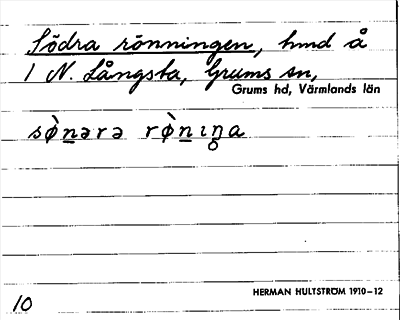 Södra rönningen, hmd å
1 N. Långsta, Grums sn,
Grums hd, Värmlands län
sø̀n̲ərə rø̀n̲ɪŋ̥a
HERMAN HULTSTRÖM 1910–12
10